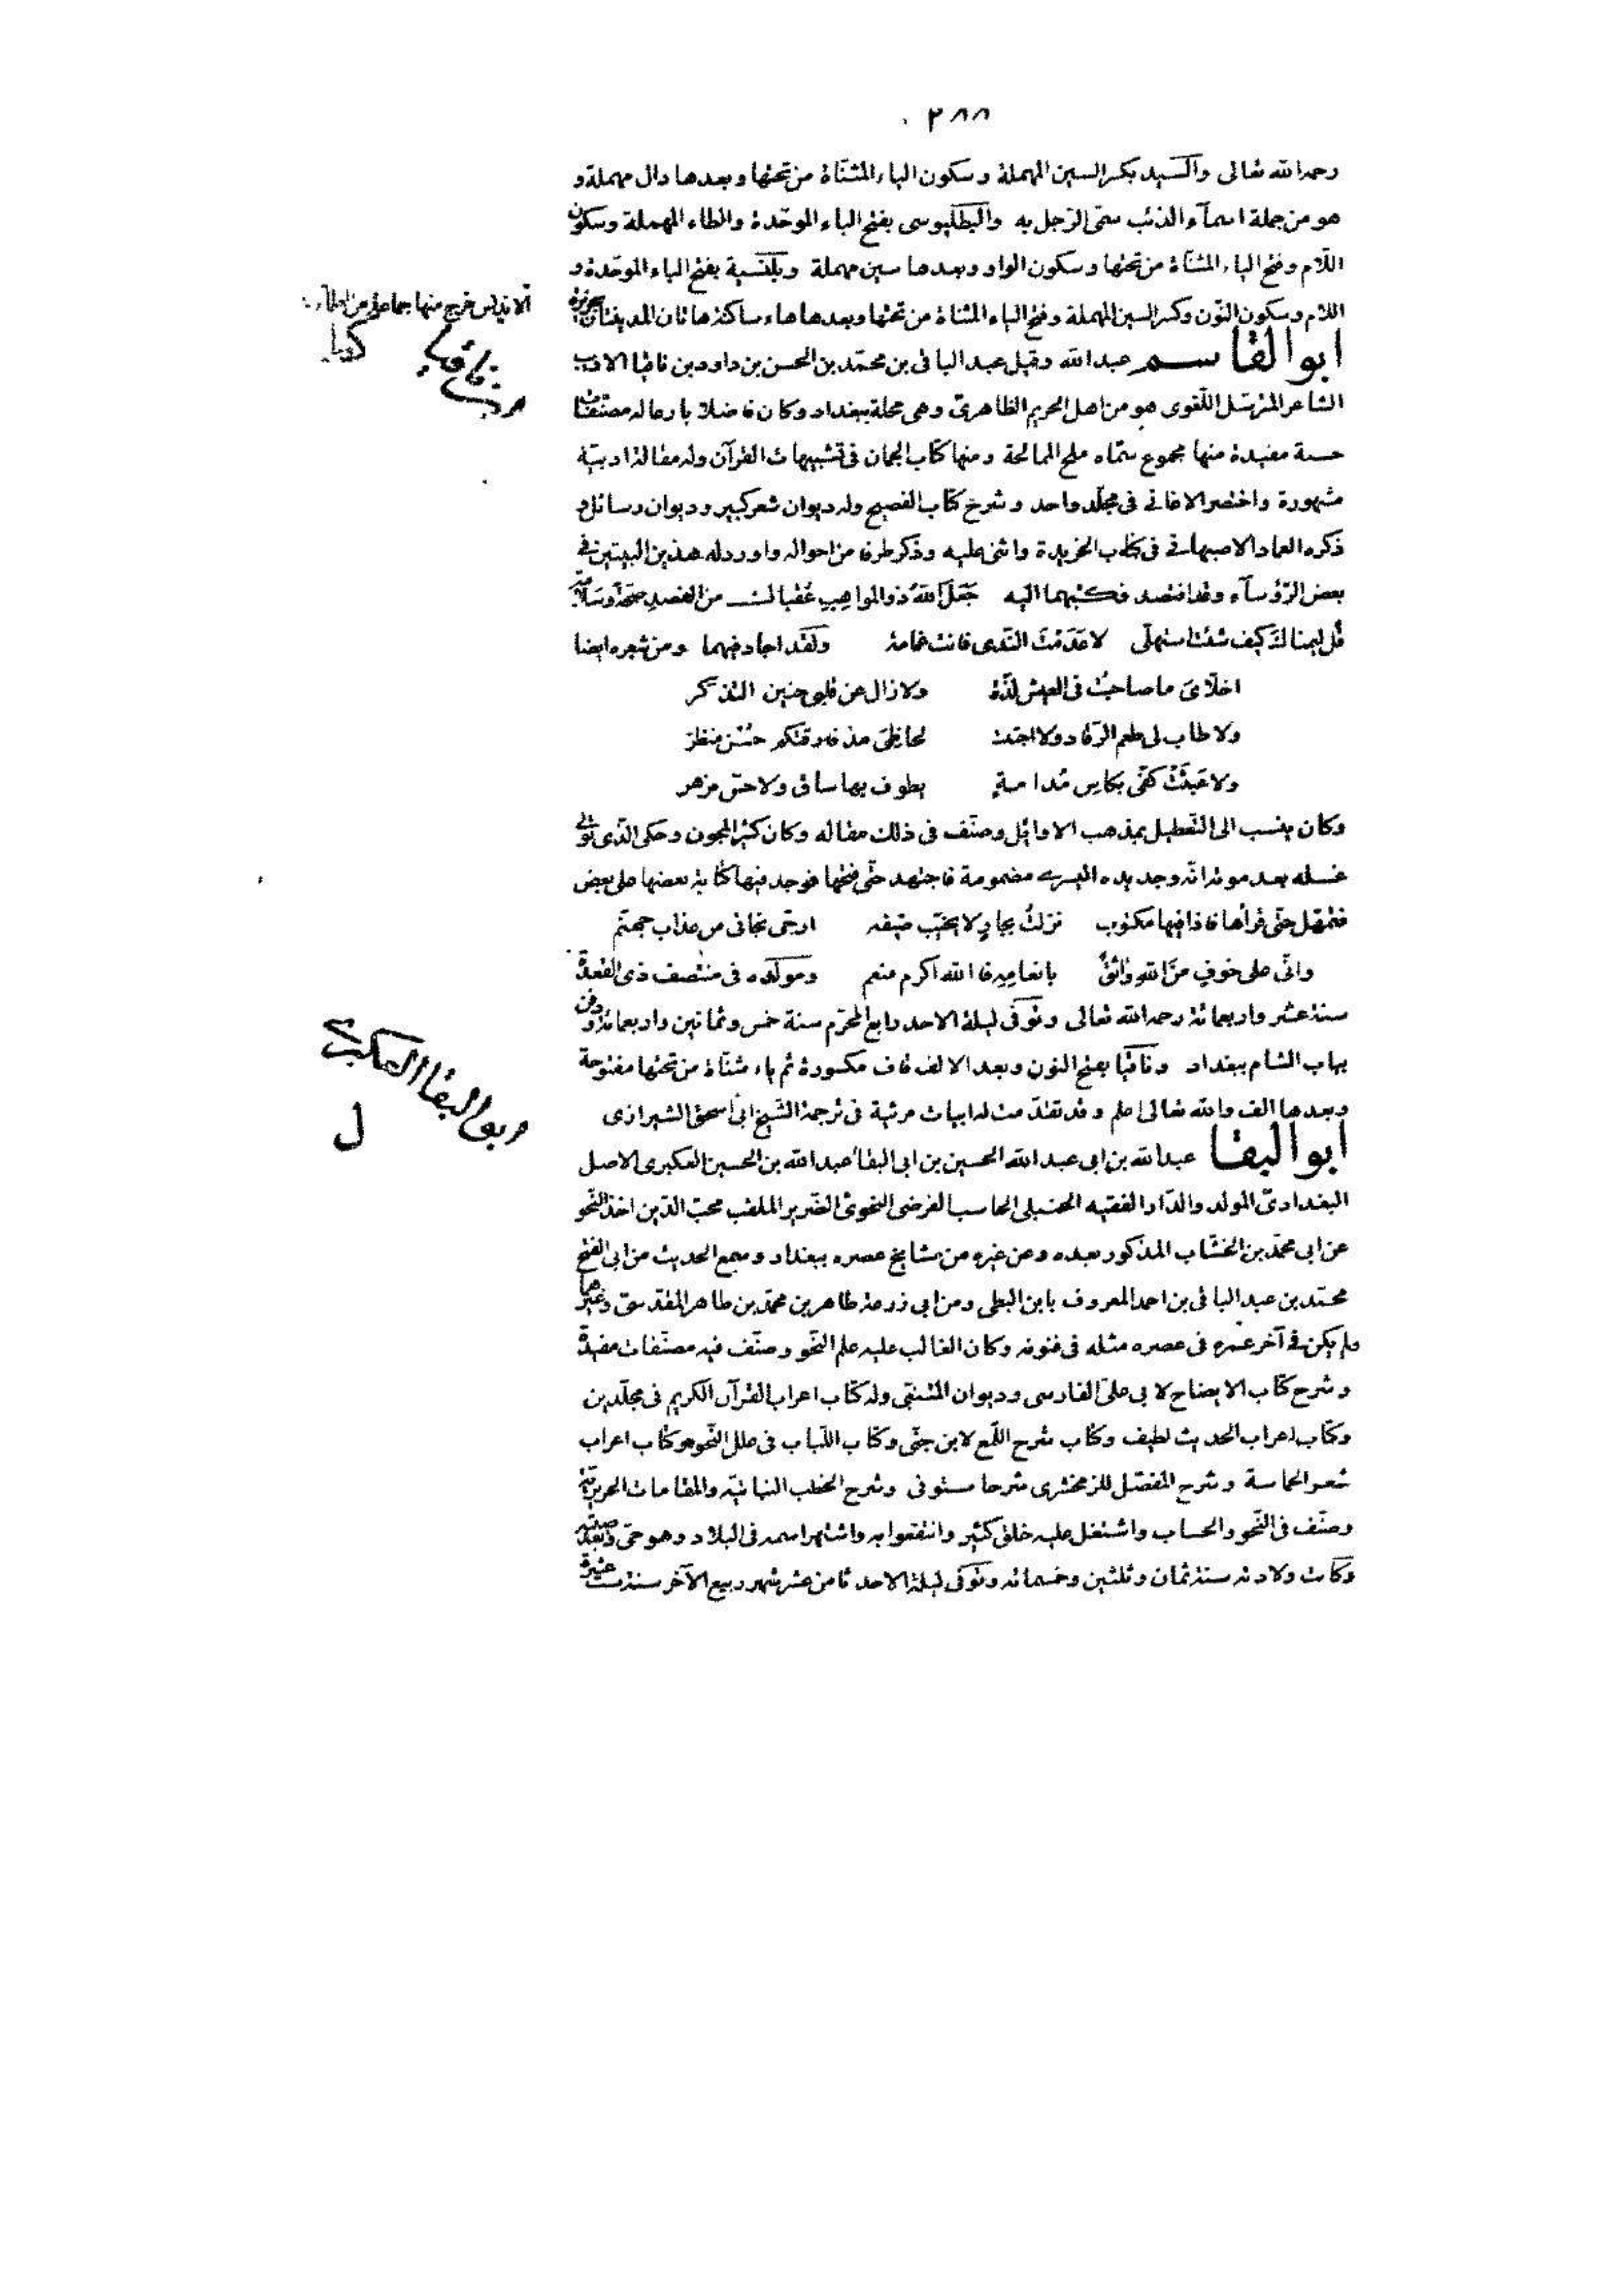 ٢٨٨
رحمه الله تعالى والسيد بكسر السين المهملة وسكون الياء المثناة من تحتها وبعدها دال مهملة و
هو من جملة اسمآء الذئب سمّى الرّجل به والبطليوسى بفتح الباء الموحّدة والطاء المهملة وسكون
اللّام وفتح الياء المثنّاة من تحتها وسكون الواو وبعدها سين مهملة وبلنسية بفتح الباء الموحّدة و
اللام وسكون النّون وكسر السين المهملة وفتح الياء المثناة من تحتها وبعدها هاء ساكنة هاتان المدينتان بجزيرة
الاندلس خرج منها جماعة من العلمآء
ابن ناقيا
ابو القاسم عبد الله وقيل عبد الباقى بن محمّد بن الحسن بن داود بن ناقيا الاديب
الشاعر المترسّل اللّغوى هو من اهل الحريم الظاهرىّ وهى محلة ببغداد وكان فاضلا بارعا له مصنّفات
حسنة مفيدة منها مجموع سمّاه ملح الممالحة ومنها كتاب الجمان فى تشبيهات القرآن وله مقالة ادبيّة
مشهورة واختصر الاغانى فى مجلّد واحد وشرح كتاب الفصيح وله ديوان شعر كبير وديوان رسائل و
ذكره العماد الاصبهانى فى كتاب الخريدة واثنى عليه وذكر طرفا من احواله واورد له هذين البيتين فى
بعض الرّؤسآء وقد افتصد فكتبهما اليه جَعَلَ اللّهُ ذو المواهبِ عُقبا لك من الفصدِ صحّةً وسَلامه
قُل ليمناك كيف شئت استهلّى لا عَدَمْتَ النّدى فانت غمامة ولقد اجاد فيهما ومن شعره ايضا
اخلّاىَ ما صاحبتُ فى العيش لذّة ولا زال عن قلبى حنين التذكر
ولا طاب لى طعم الرّقاد ولا اجتنت لحاظىَ مذ فارقتكم حُسْن منظر
ولا عَبِثَتْ كفّى بكاسِ مُدامةٍ يطوف بها ساق ولا حسّ مزهر
وكان ينسب الى التّعطيل بمذهب الاوائل وصنّف فى ذلك مقاله وكان كثير المجون وحكى الّذى تولّى
غسله بعد موته انّه وجد يده اليسرى مضمومة فاجتهد حتّى فتحها فوجد فيها كتابة بعضها على بعض
فتمهّل حتّى قرأها فاذا فيها مكتوب نزلتُ بجارٍ لا يخيّب ضيفه ارجّى نجاتى من عذاب جهنّم
وانّى على خوفى من اللّهِ واثقٌ بانعامِهِ فالله اكرم منعم ومولده فى منتصف ذى القعدة
سنة عشر واربعمائة رحمه الله تعالى وتوفّى ليلة الاحد رابع المحرّم سنة خمس وثمانين واربعمائة ودفن
بباب الشام ببغداد وناقيا بفتح النون وبعد الالف قاف مكسورة ثم ياء مثنّاة من تحتها مفتوحة
وبعدها الف والله تعالى اعلم وقد تقدّمت له ابيات مرثية فى ترجمة الشّيخ ابى اسحق الشيرازى
ابو البقا العكبرى
ل
ابو البقا عبد الله بن ابى عبد الله الحسين بن ابى البقا عبد الله بن الحسين العكبرى الاصل
البغدادىّ المولد والدّار الفقيه الحنبلى الحاسب الفرضى النحوىّ الضّرير الملقب محبّ الدّين اخذ النّحو
عن ابى محمّد بن الخشّاب المذكور بعده وعن غيره من مشايخ عصره ببغداد وسمع الحديث من ابى الفتح
محمّد بن عبد الباقى بن احمد المعروف بابن البطى ومن ابى زرعة طاهر بن محمّد بن طاهر المقدسىّ وغيرهما
ولم يكن فى آخر عمره فى عصره مثله فى فنونه وكان الغالب عليه علم النّحو وصنّف فيه مصنّفات مفيدة
وشرح كتاب الايضاح لابى علىّ الفارسى وديوان المتنبّى وله كتاب اعراب القرآن الكريم فى مجلّدين
وكتاب اعراب الحديث لطيف وكتاب شرح اللّمع لابن جنّى وكتاب اللّباب فى علل النّحو وكتاب اعراب
شعر الحماسة وشرح المفصّل للزمخشرى شرحا مستوفى وشرح الخطب النباتيّه والمقامات الحريريّة
وصنّف فى النّحو والحساب واشتغل عليه خلق كثير وانتفعوا به واشتهر اسمه فى البلاد وهو حىّ وبعد صيته
وكانت ولادته سنة ثمان وثلثين وخمسمائه وتوفّى ليلة الاحد ثامن عشر شهر ربيع الآخر سنة ست عشرة